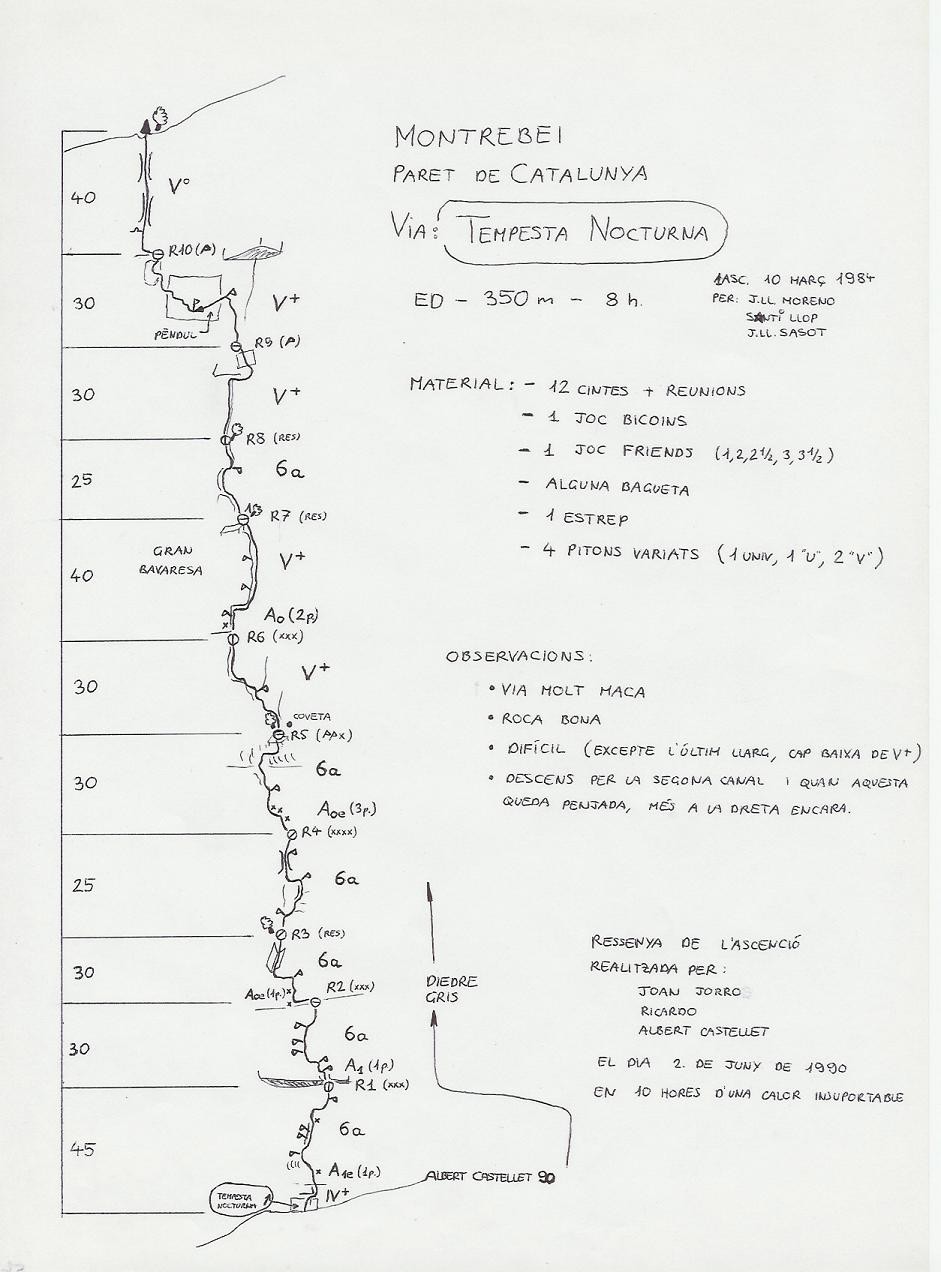 MONTREBEI
PARET DE CATALUNYA
VIA: TEMPESTA NOCTURNA
ED - 350 m - 8 h.
1ASC. 10 MARÇ 1984
PER: J.LL. MORENO
SANTI LLOP
J.LL. SASOT
MATERIAL: - 12 CINTES + REUNIONS
- 1 JOC BICOINS
- 1 JOC FRIENDS (1,2,2½,3,3½)
- ALGUNA BAGUETA
- 1 ESTREP
- 4 PITONS VARIATS (1 UNIV, 1 "U", 2 "V")
OBSERVACIONS:
• VIA MOLT MACA
• ROCA BONA
• DIFÍCIL (EXCEPTE L'ÚLTIM LLARG, CAP BAIXA DE V+)
• DESCENS PER LA SEGONA CANAL I QUAN AQUESTA
QUEDA PENJADA, MÉS A LA DRETA ENCARA.
RESSENYA DE L'ASCENCIÓ
REALITZADA PER:
JOAN JORRO
RICARDO
ALBERT CASTELLET
EL DIA 2 DE JUNY DE 1990
EN 10 HORES D'UNA CALOR INSUPORTABLE
40
Vº
R10 (A)
30
V+
PÈNDUL
R9 (A)
30
V+
R8 (RES)
25
6a
R7 (RES)
GRAN
BAVARESA
40
V+
A0 (2p.)
R6 (xxx)
30
V+
COVETA
R5 (AAx)
30
6a
A0e (3p.)
R4 (xxxx)
25
6a
R3 (RES)
30
6a
A0e (1p.)
R2 (xxx)
DIEDRE
GRIS
30
6a
A1 (1p)
R1 (xxx)
45
6a
A1e (1p.)
IV+
TEMPESTA
NOCTURNA
ALBERT CASTELLET 90